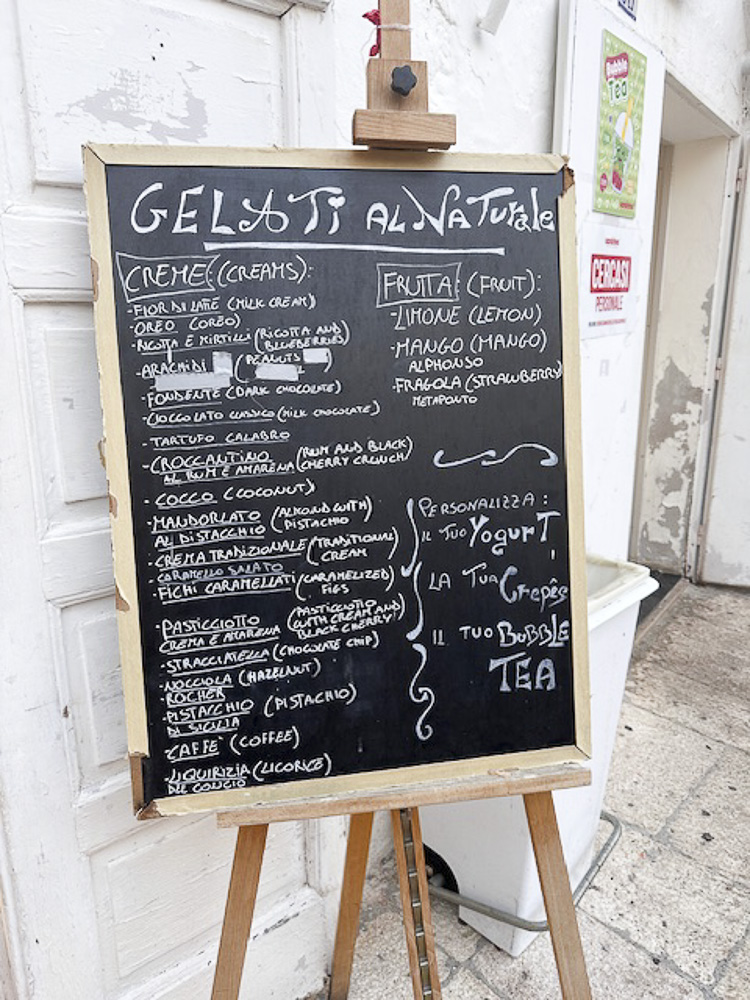 GELATI AL NATURALE
CREME: (CREAMS):
-FIOR DI LATTE (MILK CREAM)
-OREO (OREO)
-RICOTTA E MIRTILLI (RICOTTA AND
BLUEBERRIES)
-ARACHIDI (PEANUTS
-FONDENTE (DARK CHOCOLATE)
-CIOCCOLATO CLASSICO (MILK CHOCOLATE)
-TARTUFO CALABRO
-CROCCANTINO (RUM AND BLACK
AL RUM E AMARENA CHERRY CRUNCH)
-COCCO (COCONUT)
-MANDORLATO (ALMOND WITH
AL PISTACCHIO PISTACHIO)
-CREMA TRADIZIONALE (TRADITIONAL
CREAM)
CARAMELLO SALATO
-FICHI CARAMELLATI (CARAMELIZED
FIGS)
-PASTICCIOTTO (PASTICCIOTTO
CREMA E AMARENA WITH CREAM AND
BLACK CHERRY)
-STRACCIATELLA (CHOCOLATE CHIP)
-NOCCIOLA (HAZELNUT)
ROCHER
-PISTACCHIO (PISTACHIO)
DI SICILIA
-CAFFE' (COFFEE)
-LIQUIRIZIA (LICORICE)
FRUTTA: (FRUIT):
-LIMONE (LEMON)
-MANGO (MANGO)
ALPHONSO
-FRAGOLA (STRAWBERRY)
METAPONTO
PERSONALIZZA:
IL TUO YogurT,
LA TUA Crepês
IL TUO BUBBLE
TEA
Bubble
Tea
CERCASI
PERSONALE